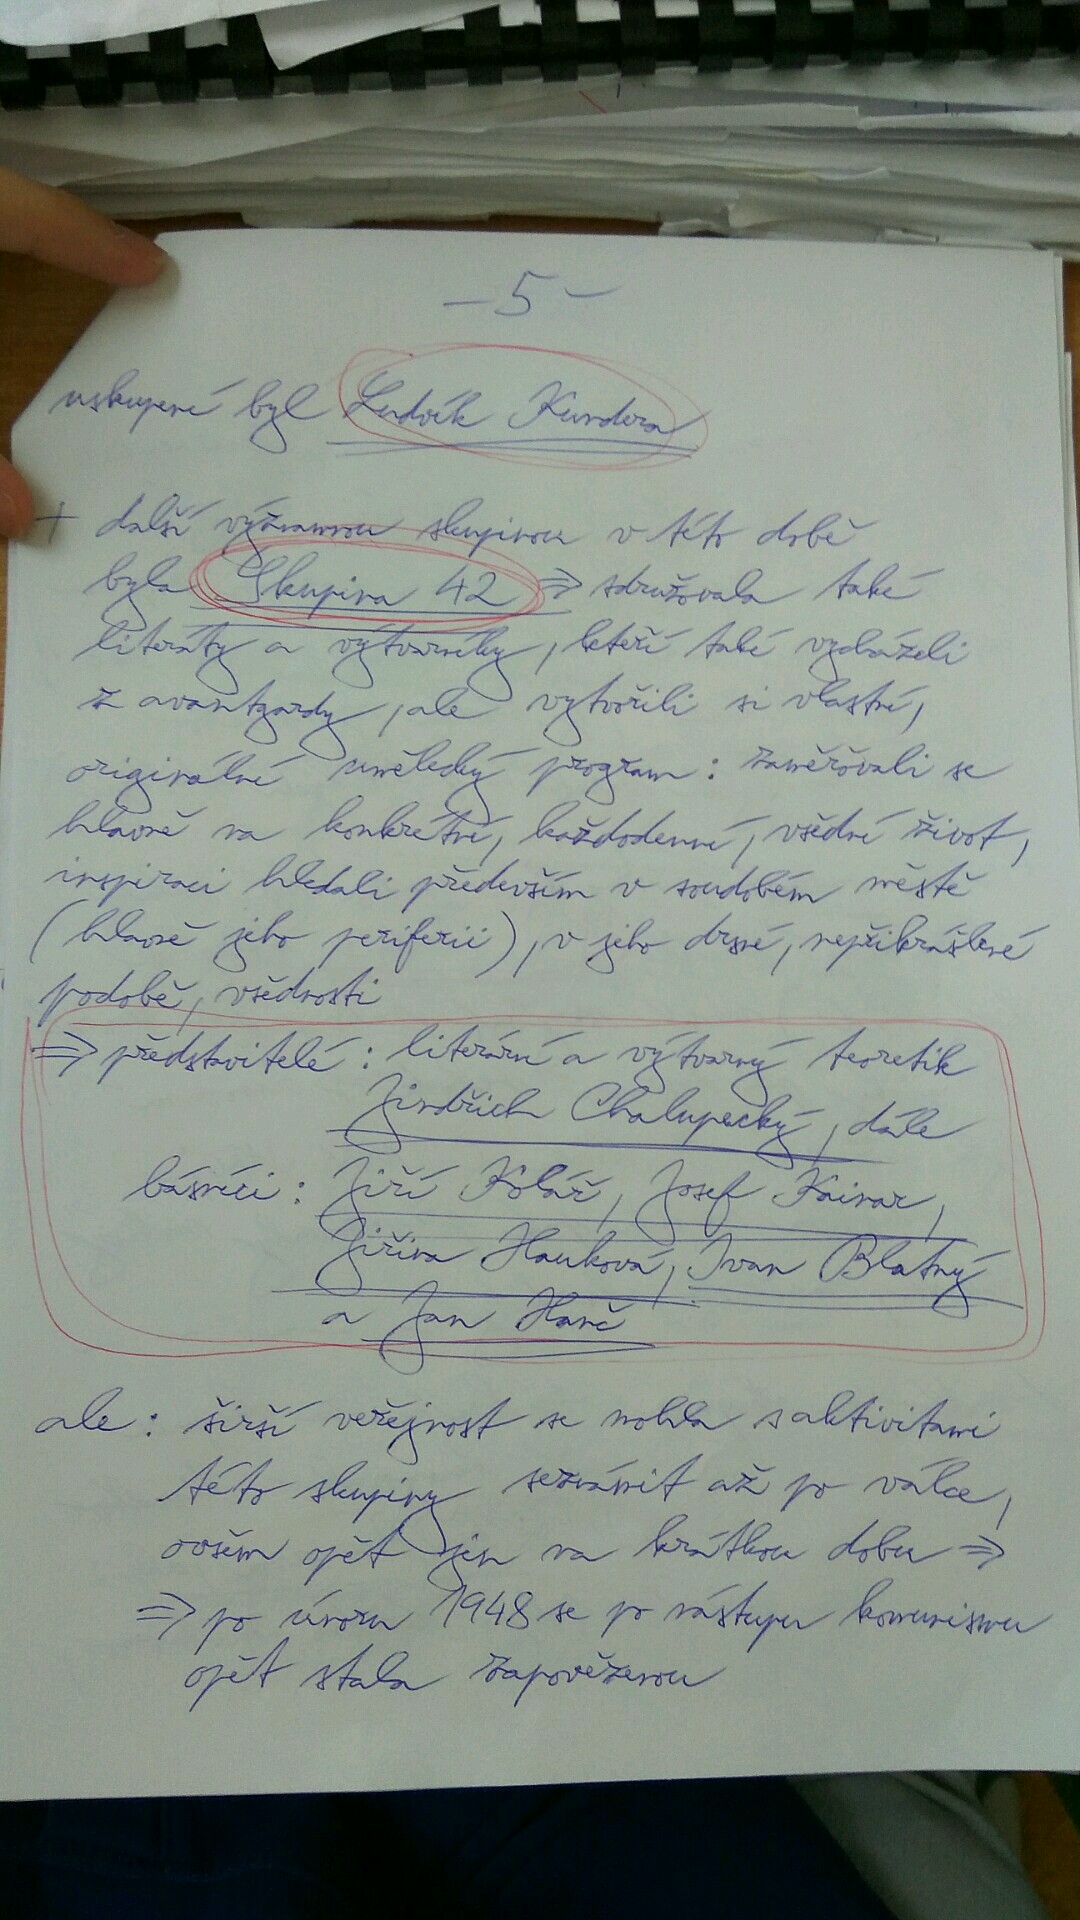 – 5 –
uskupení byl Ludvík Kundera
+ další významnou skupinou v této době
byla Skupina 42 => sdružovala také
literáty a výtvarníky, kteří také vycházeli
z avantgardy, ale vytvořili si vlastní,
originální umělecký program: zaměřovali se
hlavně na konkrétní, každodenní, všední život,
inspiraci hledali především v soudobém městě
(hlavně jeho periferii), v jeho drsné, nepřikrášlené
podobě, všednosti
=> představitelé: literární a výtvarný teoretik
Jindřich Chalupecký, dále
básníci: Jiří Kolář, Josef Kainar,
Jiřina Hauková, Ivan Blatný
a Jan Hanč
ale: širší veřejnost se mohla s aktivitami
této skupiny seznámit až po válce,
ovšem opět jen na krátkou dobu =>
=> po únoru 1948 se po nástupu komunismu
opět stala zapovězenou